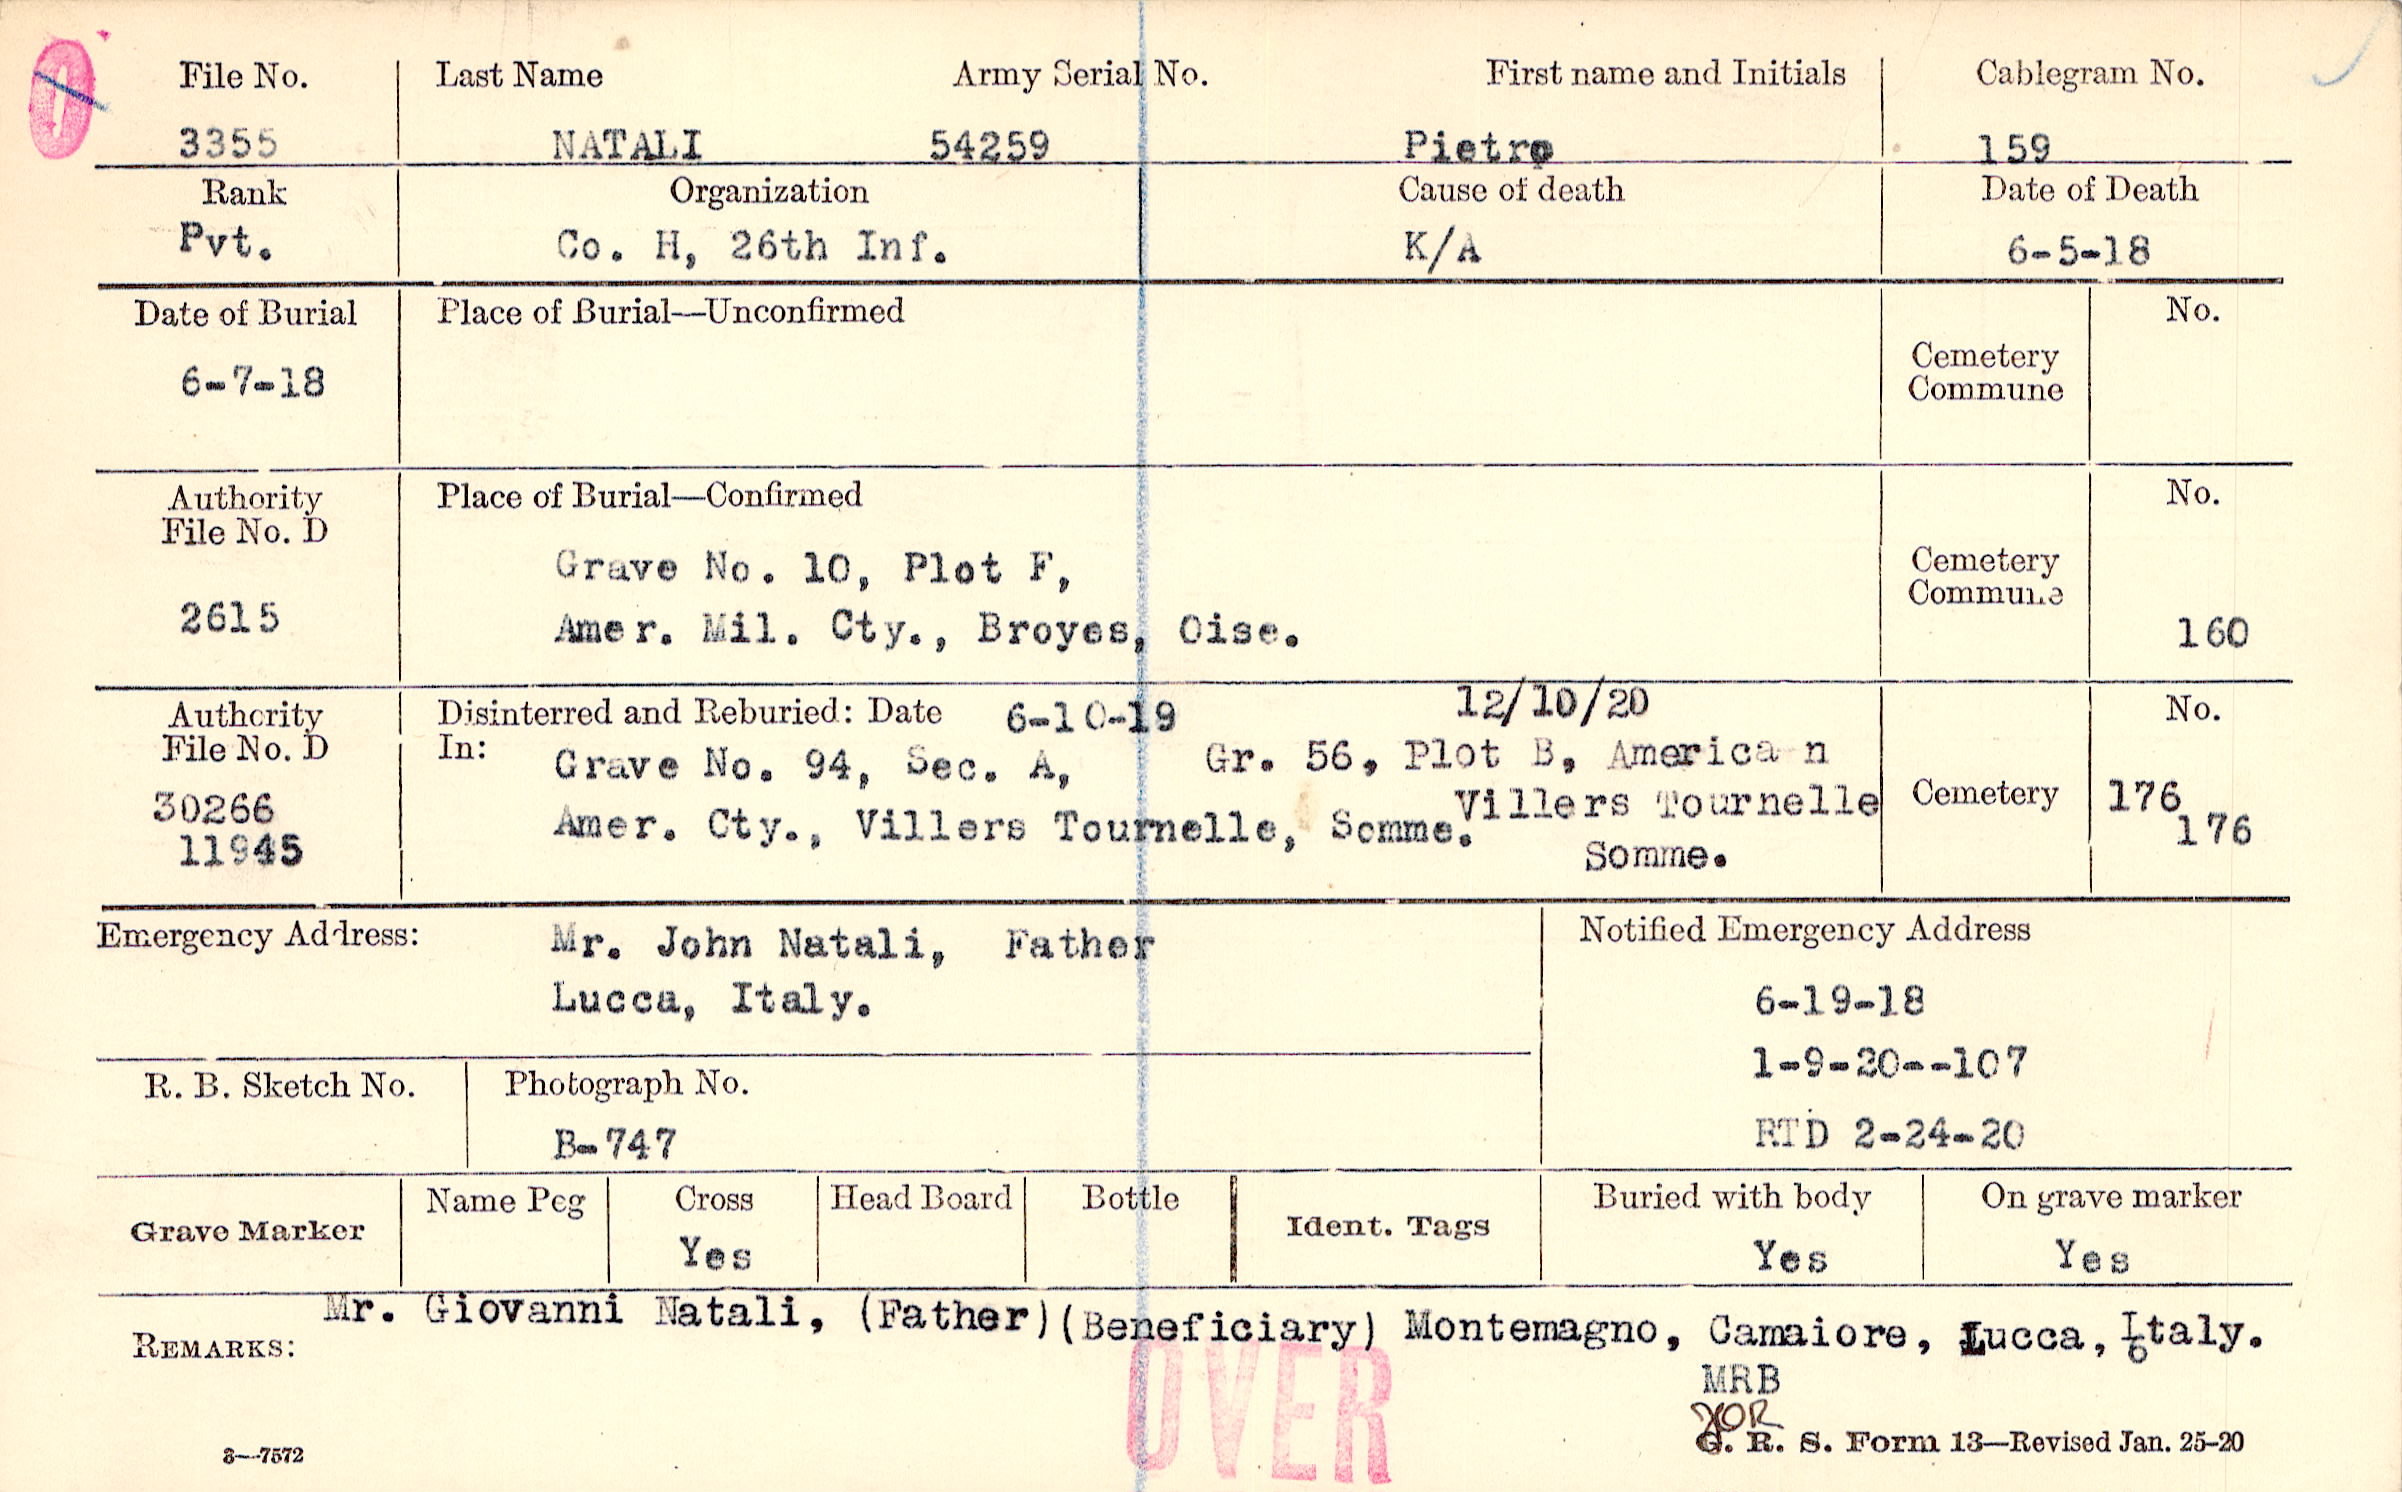 0
File No. Last Name Army Serial No. First name and Initials Cablegram No.
3355 NATALI 54259 Pietro 159
Rank Organization Cause of death Date of Death
Pvt. Co. H, 26th Inf. K/A 6-5-18
Date of Burial Place of Burial—Unconfirmed No.
Cemetery
Commune
6-7-18
Authority Place of Burial—Confirmed No.
File No. D
Grave No. 10, Plot F, Cemetery
Commune
2615 Amer. Mil. Cty., Broyes, Oise. 160
Authority Disinterred and Reburied: Date 6-10-19 12/10/20 No.
File No. D In: Grave No. 94, Sec. A, Gr. 56, Plot B, American
30266 Amer. Cty., Villers Tournelle, Somme. Villers Tournelle Cemetery 176
11945 Somme. 176
Emergency Address: Mr. John Natali, Father Notified Emergency Address
Lucca, Italy. 6-19-18
1-9-20--107
R. B. Sketch No. Photograph No.
B-747 RTD 2-24-20
Grave Marker Name Peg Cross Head Board Bottle Ident. Tags Buried with body On grave marker
Yes Yes Yes
Mr. Giovanni Natali, (Father)(Beneficiary) Montemagno, Camaiore, Lucca, Italy.
REMARKS: 6
MRB
OVER
3—7572 G. R. S. Form 13—Revised Jan. 25-20